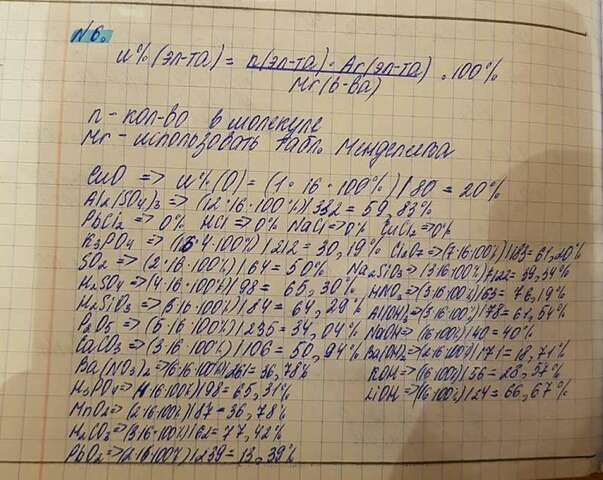 №6.
ω%(эл-та) = n(эл-та) · Ar(эл-та) / Mr(в-ва) · 100%
n - кол-во в молекуле
Mr - использовать табл. Менделеева
CuO => ω%(O) = (1·16·100%)/80 = 20%
Al2(SO4)3 => (12·16·100%)/332 = 59,83%
PbCl2 => 0% HCl => 0% NaCl => 0% CuCl2 => 0%
K3PO4 => (16·4·100%)/212 = 30,19% Cl2O7 => (7·16·100%)/183 = 61,20%
SO2 => (2·16·100%)/64 = 50% Na2SiO3 => (3·16·100%)/122 = 39,34%
H2SO4 => (4·16·100%)/98 = 65,30% HNO3 => (3·16·100%)/63 = 76,19%
H2SiO3 => (3·16·100%)/84 = 64,29% Al(OH)3 => (3·16·100%)/78 = 61,54%
P2O5 => (5·16·100%)/235 = 34,04% NaOH => (16·100%)/40 = 40%
CaCO3 => (3·16·100%)/106 = 50,94% Ba(OH)2 => (2·16·100%)/171 = 18,71%
Ba(NO3)2 => (6·16·100%)/261 = 36,78% KOH => (16·100%)/56 = 28,57%
H3PO4 => (4·16·100%)/98 = 65,31% LiOH => (16·100%)/24 = 66,67%
MnO2 => (2·16·100%)/87 = 36,78%
H2CO3 => (3·16·100%)/62 = 77,42%
PbO2 => (2·16·100%)/239 = 13,39%